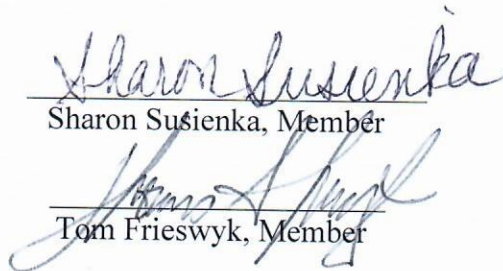 Sharon Susienka
Sharon Susienka, Member
Tom Frieswyk, Member